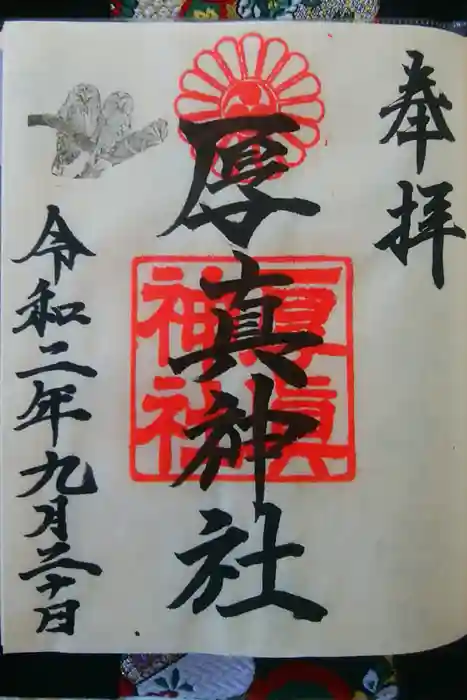 奉拝
厚真神社
厚真
神社
令和二年九月二十日